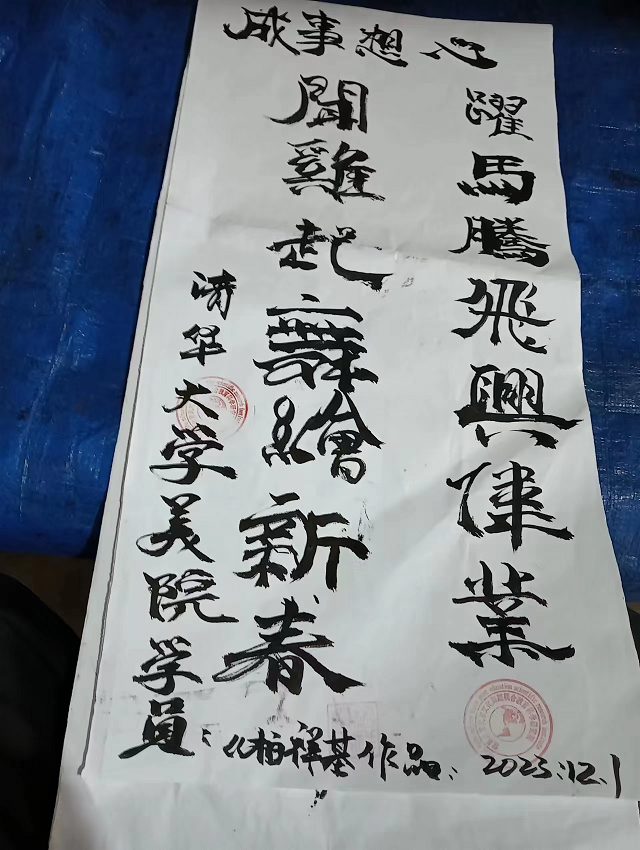 心想事成
躍馬騰飛興偉業
聞雞起舞繪新春
清华大学美院学員:
《柏祥基作品: 2023.12.1